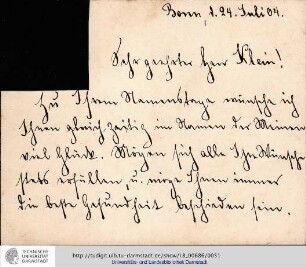 Bonn, d. 24. Juli 04.
Sehr geehrter Herr Klein!
Zu Ihrem Namenstage wünsche ich
Ihnen gleichzeitig im Namen der Meinen
viel Glück. Mögen sich alle Ihre Wünsche
stets erfüllen, u. möge Ihnen immer
die beste Gesundheit beschieden sein.
TECHNISCHE
UNIVERSITÄT
DARMSTADT
http://tudigit.ulb.tu-darmstadt.de/show/18_00686/0031
Universitäts- und Landesbibliothek Darmstadt